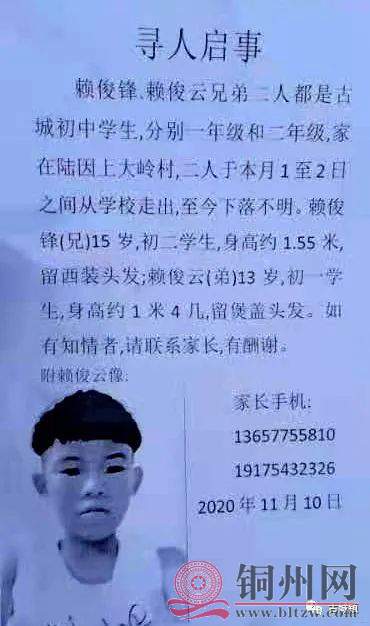 寻人启事
赖俊锋、赖俊云兄弟二人都是古
城初中学生,分别一年级和二年级,家
在陆因上大岭村,二人于本月1至2日
之间从学校走出,至今下落不明。赖俊
锋(兄)15岁,初二学生,身高约1.55米,
留西装头发;赖俊云(弟)13岁,初一学
生,身高约1米4几,留煲盖头发。如
有知情者,请联系家长,有酬谢。
附赖俊云像:
家长手机:
13657755810
19175432326
2020年11月10日
铜州网
www.bltzw.com